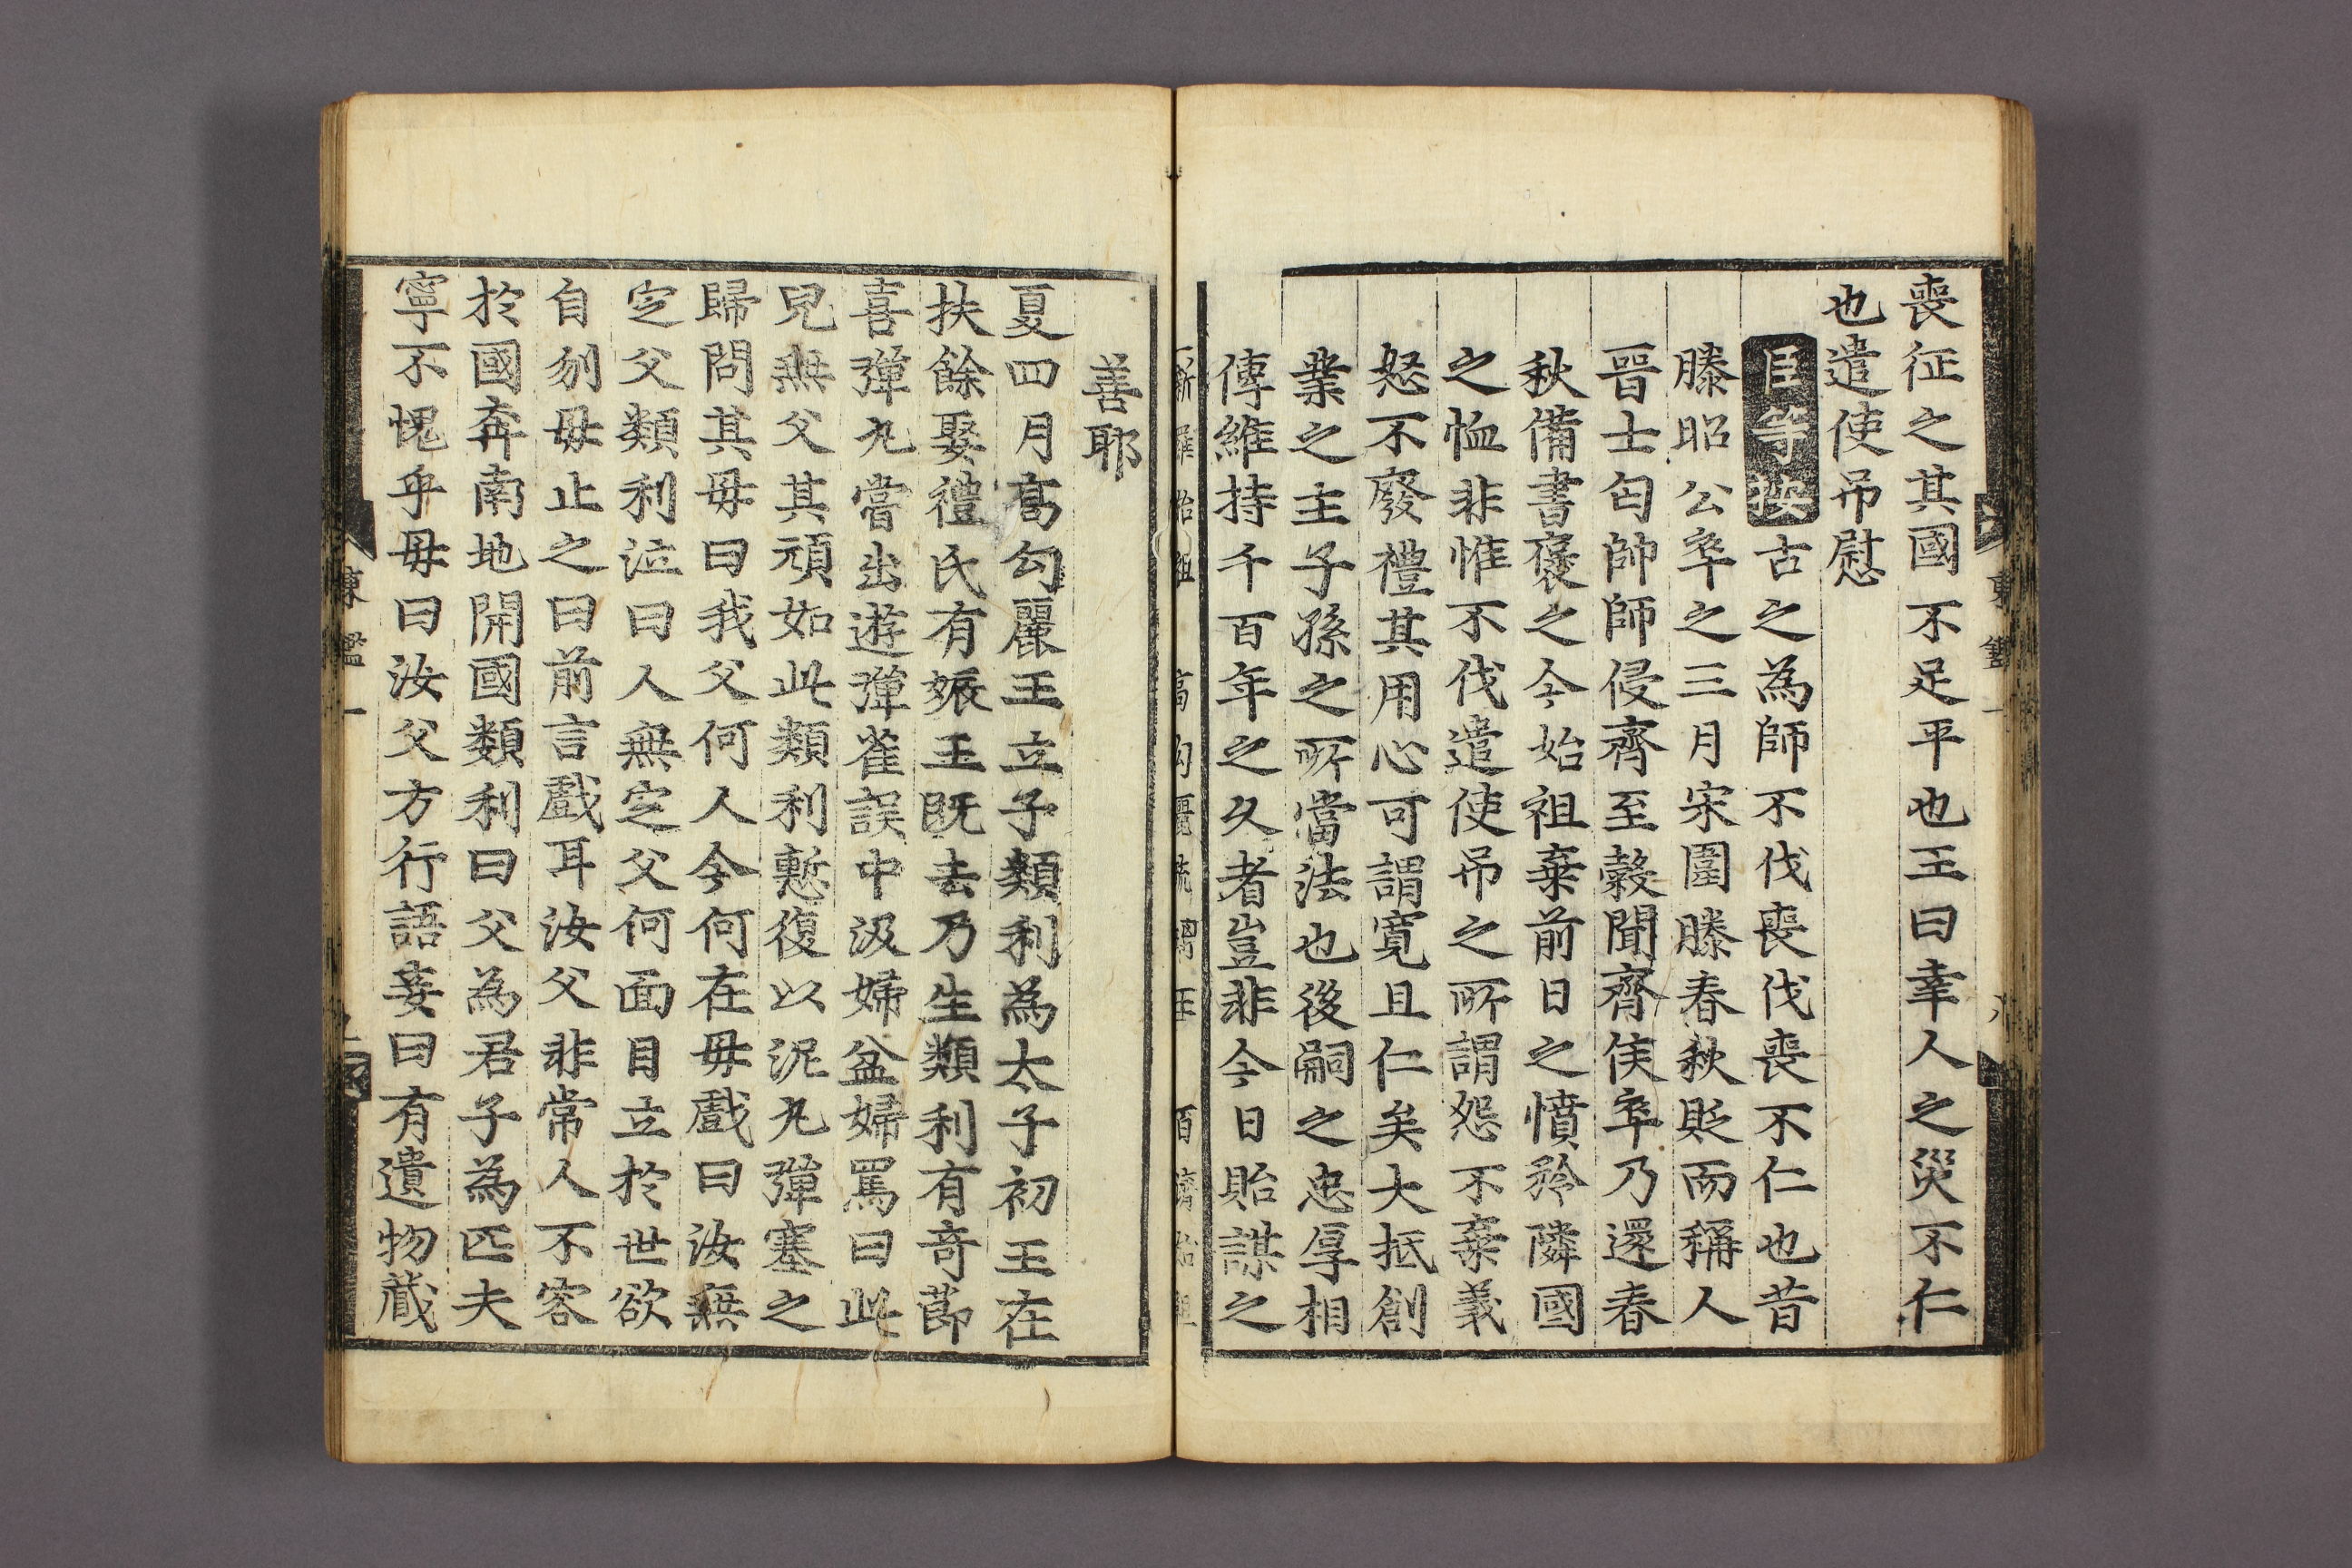 喪征之其國不足平也王曰幸人之災不仁
也遣使吊慰
臣等按古之為師不伐喪伐喪不仁也昔
滕昭公卒之三月宋圍滕春秋貶而稱人
晉士匄帥師侵齊至穀聞齊侯卒乃還春
秋備書褒之今始祖棄前日之憤矜隣國
之恤非惟不伐遣使吊之所謂怨不棄義
怒不廢禮其用心可謂寬且仁矣大抵創
業之主子孫之所當法也後嗣之忠厚相
傳維持千百年之久者豈非今日貽謀之
善耶
夏四月高勾麗王立子類利為太子初王在
扶餘娶禮氏有娠王既去乃生類利有奇節
喜彈丸嘗出遊彈雀誤中汲婦盆婦罵曰此
兒無父其頑如此類利慙復以泥丸彈塞之
歸問其毋曰我父何人今何在毋戲曰汝無
定父類利泣曰人無定父何面目立於世欲
自刎毋止之曰前言戲耳汝父非常人不容
於國奔南地開國類利曰父為君子為匹夫
寧不愧乎毋曰汝父方行語妾曰有遺物藏
東鑑一